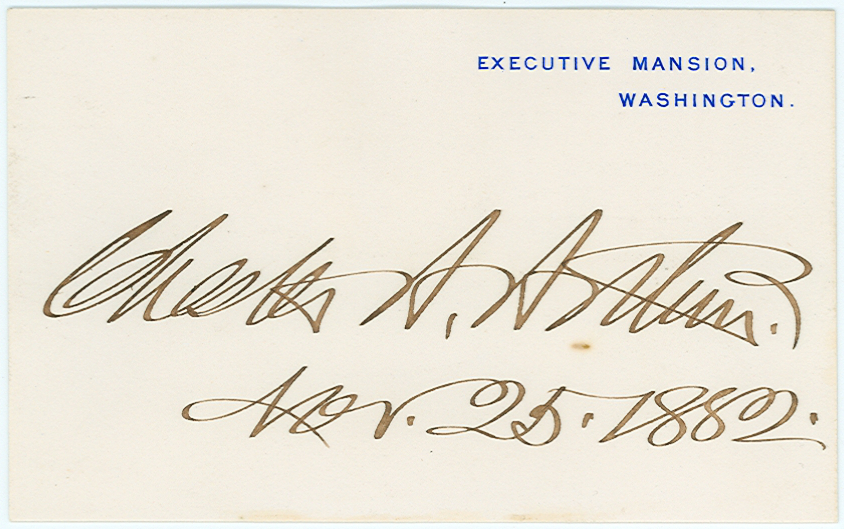 EXECUTIVE MANSION,
WASHINGTON.
Chester A. Arthur.
Nov. 25. 1882.